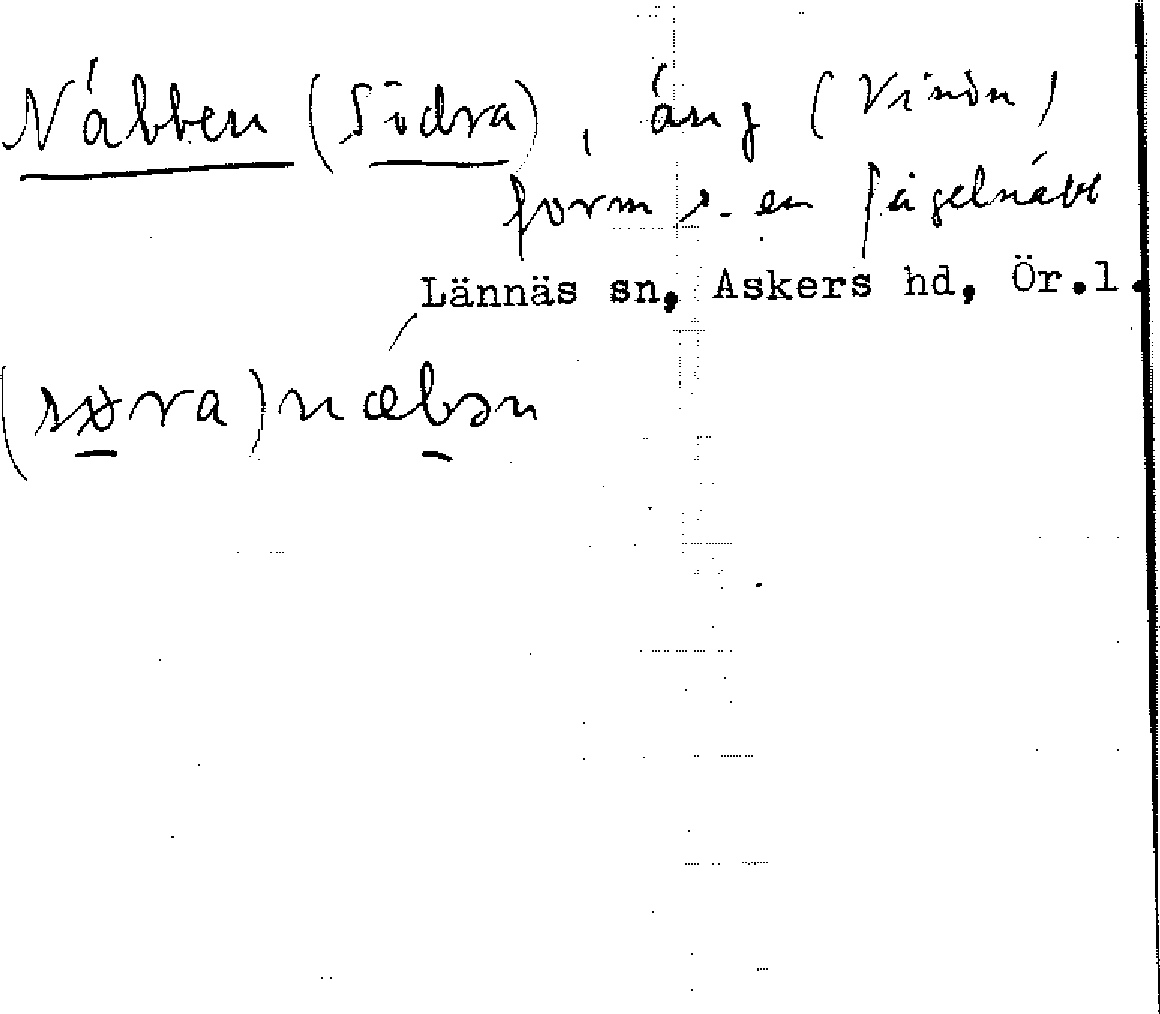 Näbben (Södra), äng (Vinön)
form s. en fågelnäbb
Lännäs sn, Askers hd, Ör.l.
(søra) næbən